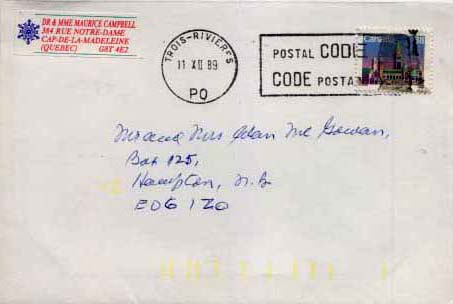 DR & MME MAURICE CAMPBELL
384 RUE NOTRE-DAME
CAP-DE-LA-MADELEINE
(QUEBEC) G8T 4E2
TROIS-RIVIERES
11 XII 89
PQ
POSTAL CODE
CODE POSTAL
Canada
Mr and Mrs Alan Mc Gowan,
Box 125,
Hampton, N.B
E0G 1Z0